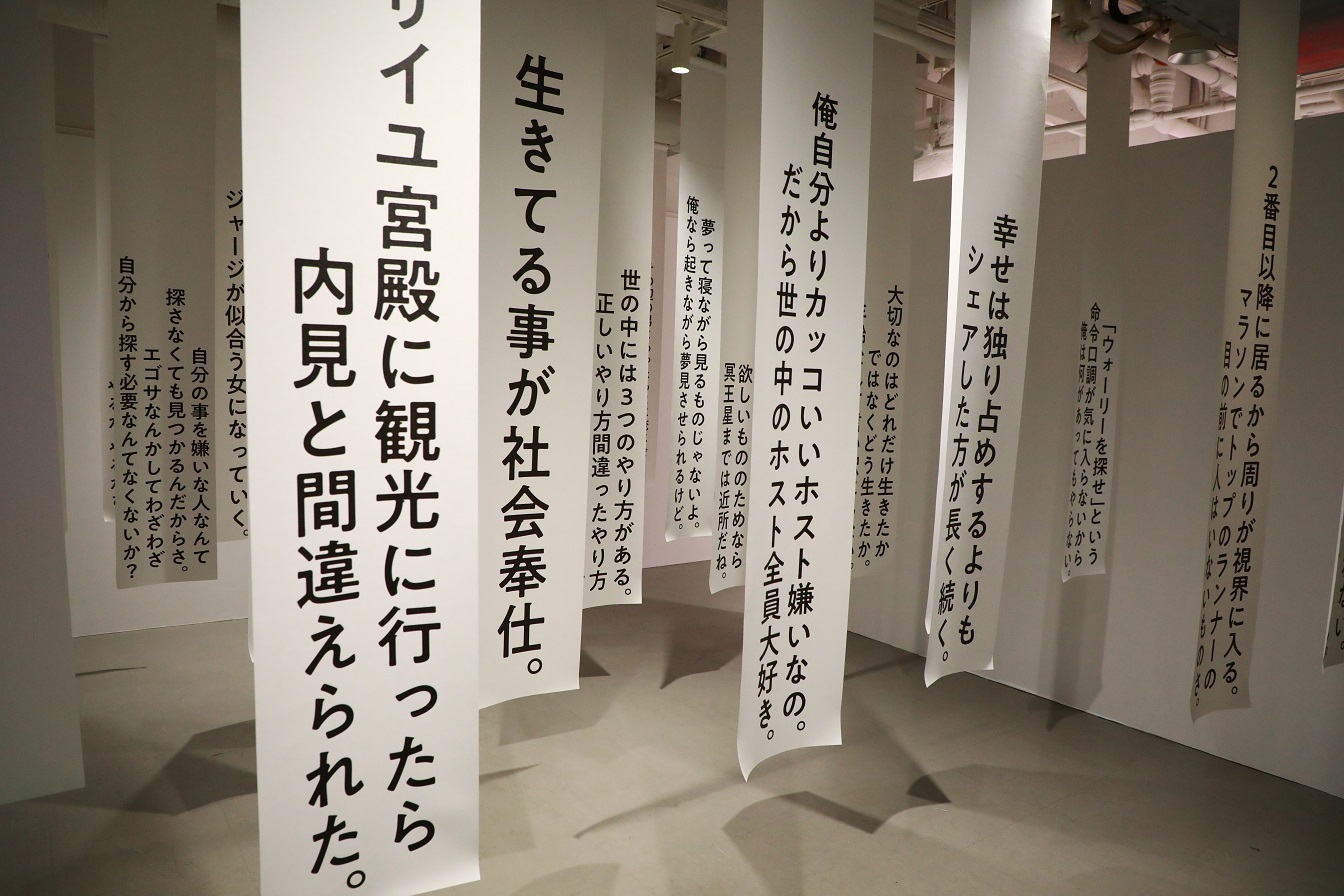 サイユ宮殿に観光に行ったら
内見と間違えられた。
生きてる事が社会奉仕。
俺自分よりカッコいいホスト嫌いなの。
だから世の中のホスト全員大好き。
幸せは独り占めするよりも
シェアした方が長く続く。
2番目以降に居るから周りが視界に入る。
マラソンでトップのランナーの
目の前に人はいないものさ。
「ウォーリーを探せ」という
命令口調が気に入らないから
俺は何があってもやらない。
大切なのはどれだけ生きたか
ではなくどう生きたか。
欲しいもののためなら
冥王星までは近所だね。
夢って寝ながら見るものじゃないよ。
俺なら起きながら夢見させられるけど。
世の中には3つのやり方がある。
正しいやり方間違ったやり方
ジャージが似合う女になっていく。
自分の事を嫌いな人なんて
探さなくても見つかるんだからさ。
エゴサなんかしてわざわざ
自分から探す必要なんてなくないか?